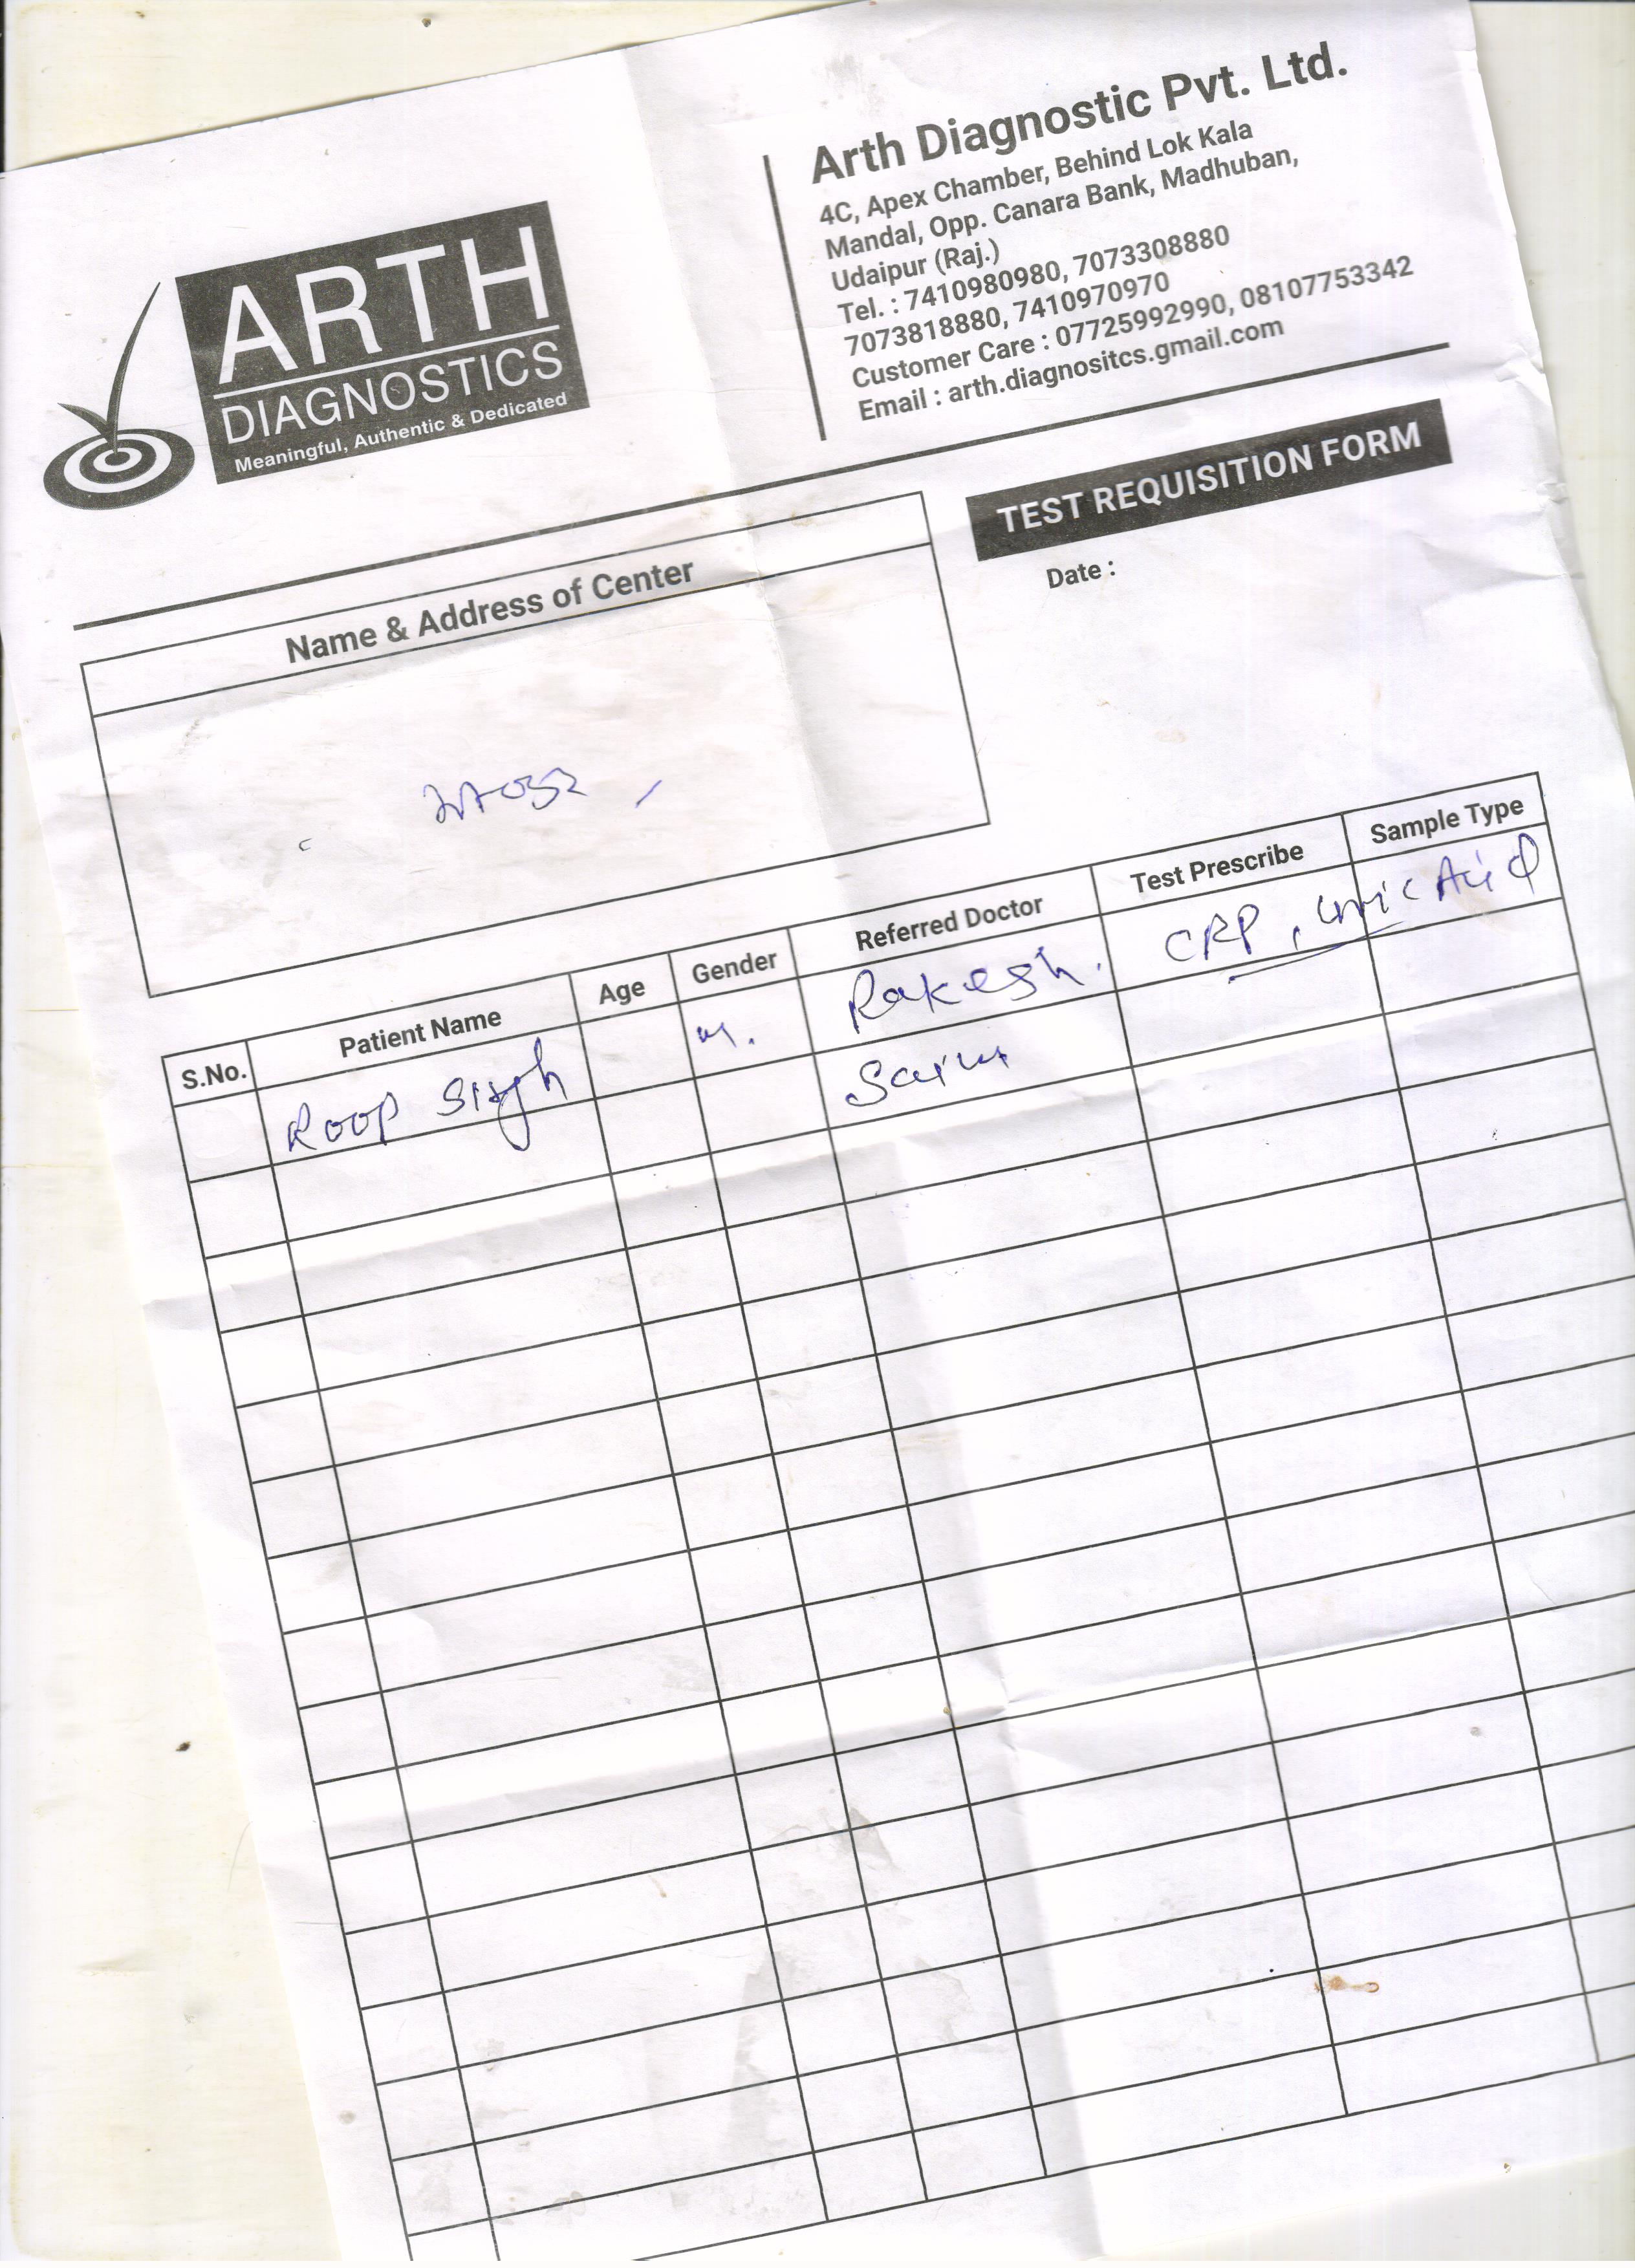 ARTH
DIAGNOSTICS
Meaningful, Authentic & Dedicated
Arth Diagnostic Pvt. Ltd.
4C, Apex Chamber, Behind Lok Kala
Mandal, Opp. Canara Bank, Madhuban,
Udaipur (Raj.)
Tel. : 7410980980, 7073308880
7073818880, 7410970970
Customer Care : 07725992990, 08107753342
Email : arth.diagnositcs.gmail.com
TEST REQUISITION FORM
Date :
Name & Address of Center
S.No. Patient Name Age Gender Referred Doctor Test Prescribe Sample Type
Roop Singh M. Rakesh. CRP, Uric Acid